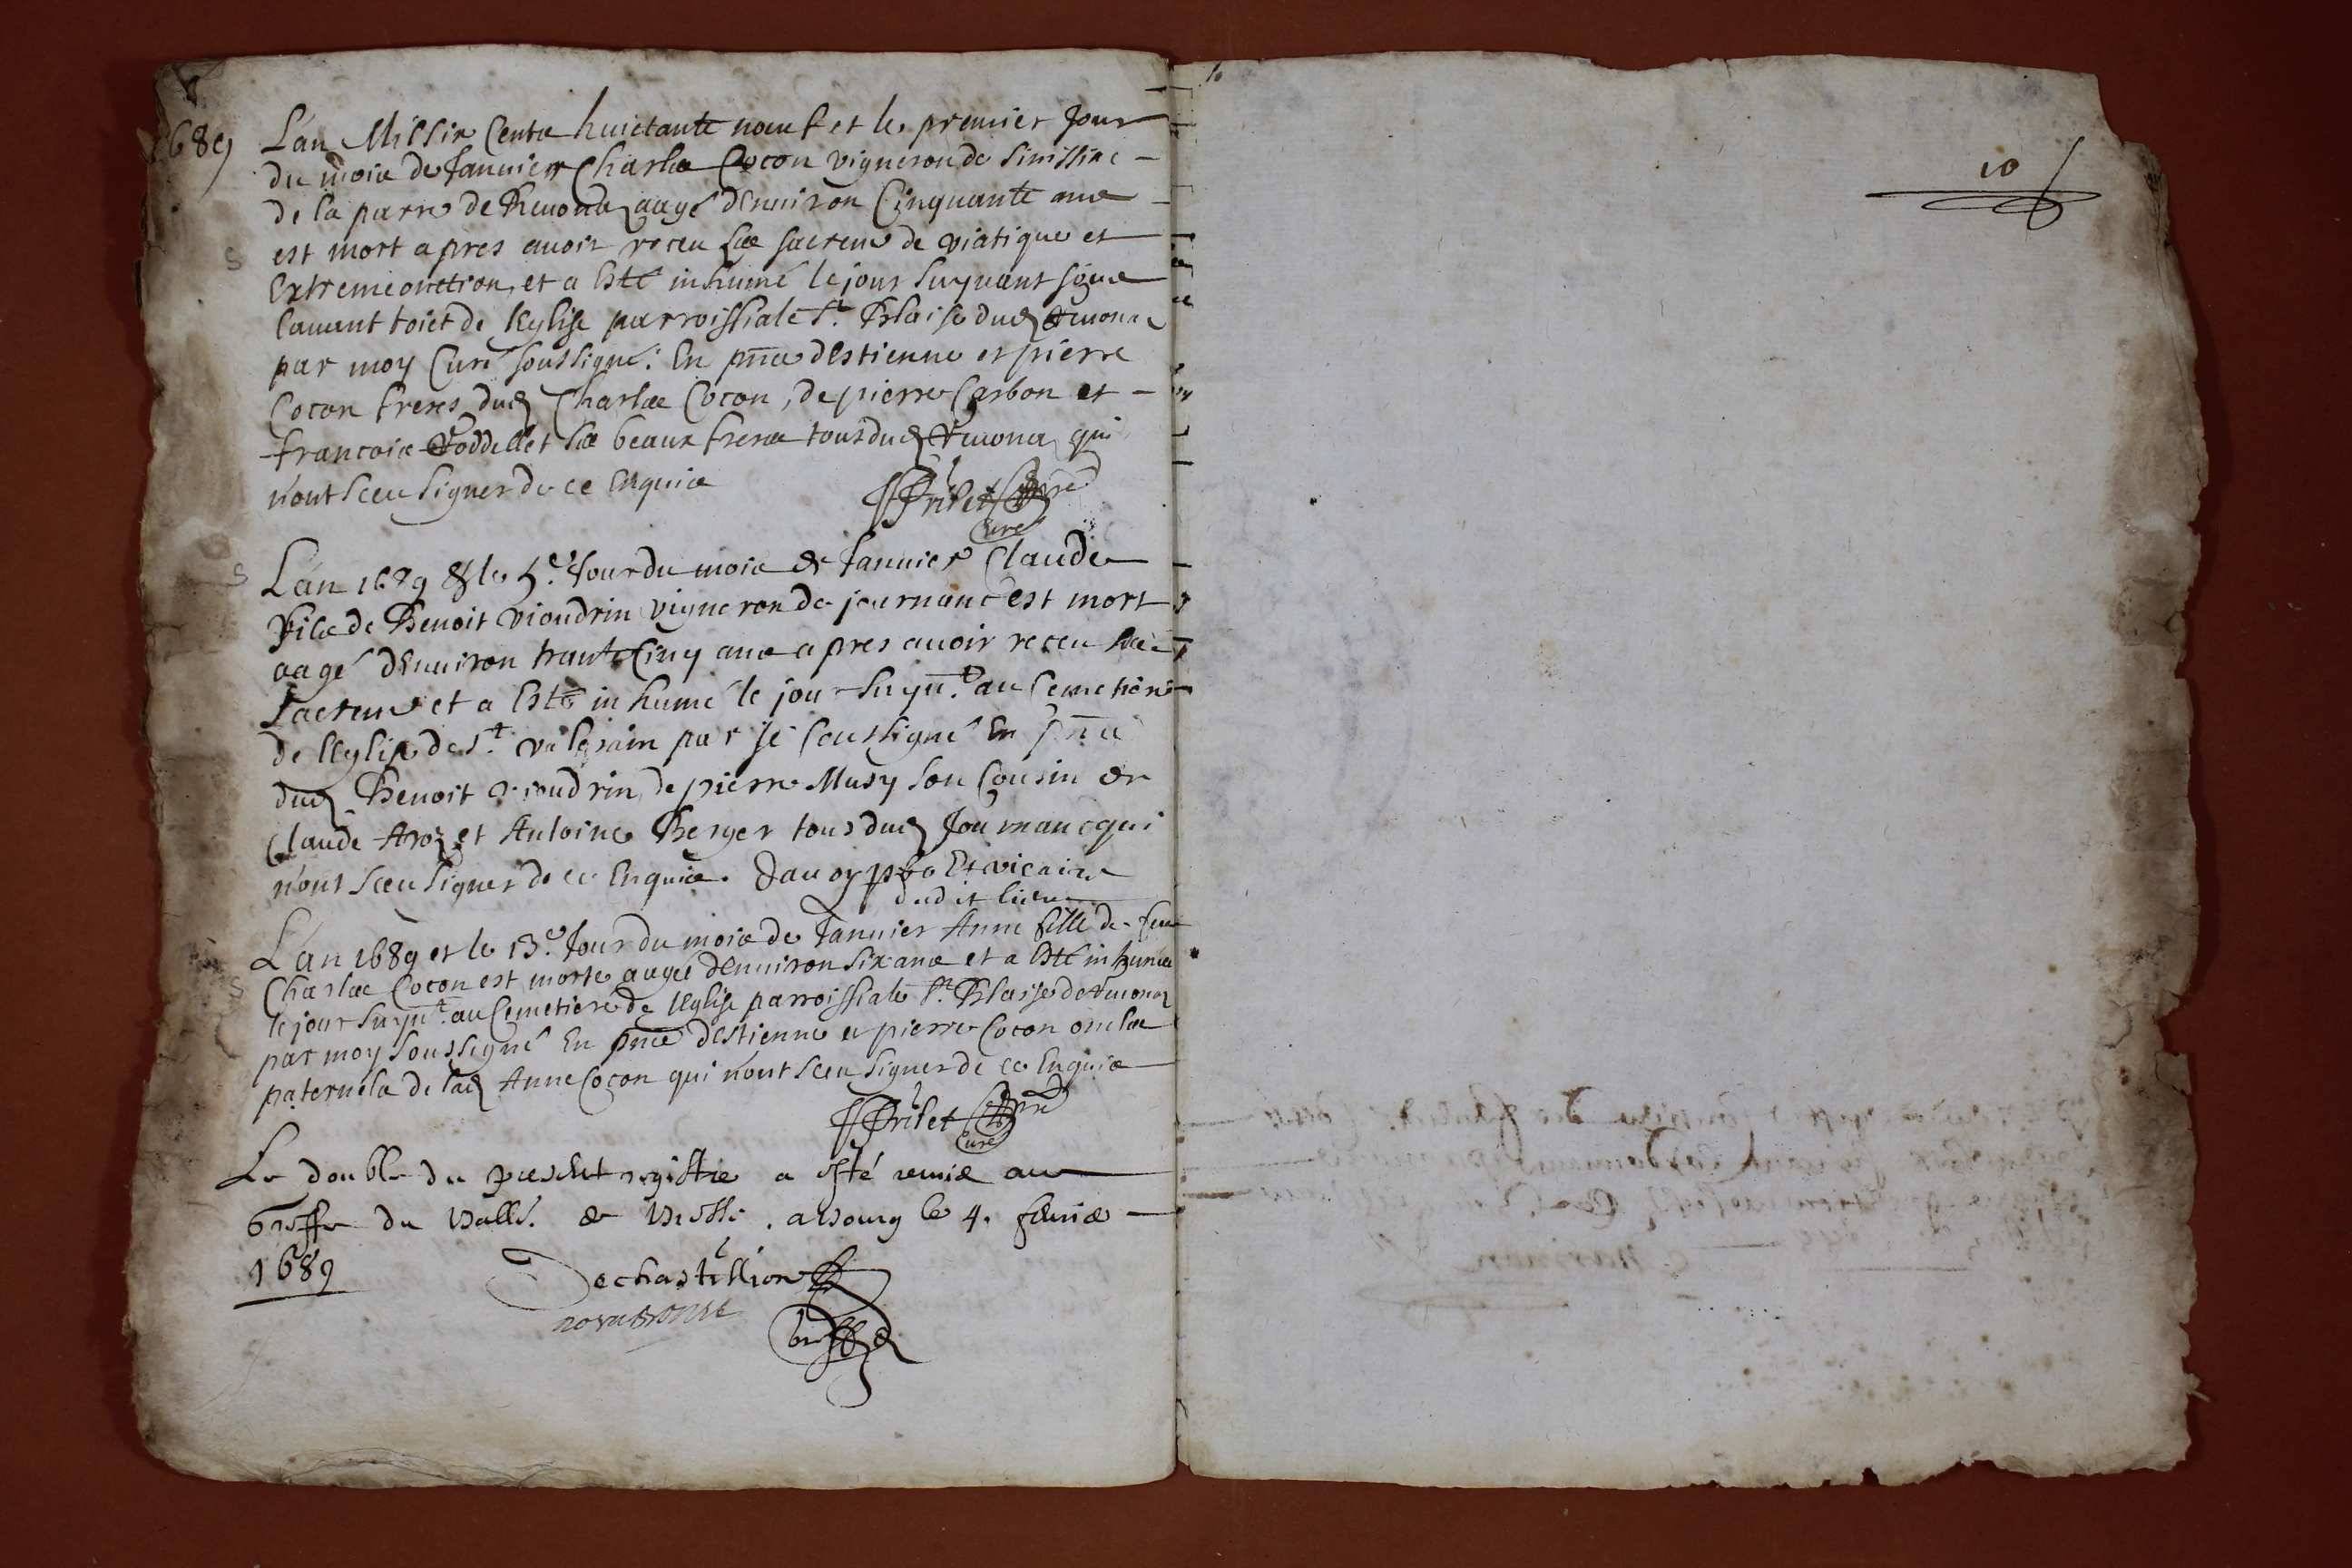 1689
L'an Mil six Cents huictante noeuf et le premier Jour
du mois de Januier Charles Cocon vigneron de Simissiac
de la parre de Reuonas aagé d'Enuiron Cinquante ans
est mort apres auoir receu ses sacrens de viatique et
Extremeonction, et a Esté inhumé le jour suyuant soubs
l'auant toict de l'Eglise parroissiale St. Blaise dud Reuonas
par moy Curé soussigné: En pnce d'Estienne et pierre
Cocon freres dud Charles Cocon, de pierre Carbon et
francois Roddellet ses beaux freres tous dud Reuonas qui
n'ont sceu signer de ce Enquis
Prilet
Curé
L'an 1689 & le 5e. Jour du mois de Januier Claude
Fils de Benoit Vioudrin vigneron de journans est mort
aagé d'Enuiron trante Cinq ans apres auoir receu ses
sacrens et a Esté inhumé le jour suyut. au Cemetiere
de l'Eglise de St. valerain par je soussigné En pnce
dud Benoit Vioudrin, de pierre Musy son Cousin de
Claude Aroz et Antoine Berger tous dud Journans qui
n'ont sceu signer de ce Enquis. Dauoy pbr Et vicaire
dudit lieu
L'an 1689 et le 13e. Jour du mois de Januier Anne fille de feu
Charles Cocon est morte aagée d'Enuiron six ans et a Esté inhumée
le jour suyut. au Cemetiere de l'Eglise parroissiale St. Blaise de Reuonas
par moy soussigné En pnce d'Estienne et pierre Cocon oncles
paternels de lad Anne Cocon qui n'ont sceu signer de ce Enquis
Prilet
Curé
Le double du present registre a esté remis au
Greffe du Balle. de Bresse. a bourg le 4. feurier
1689
Dechastillion
10